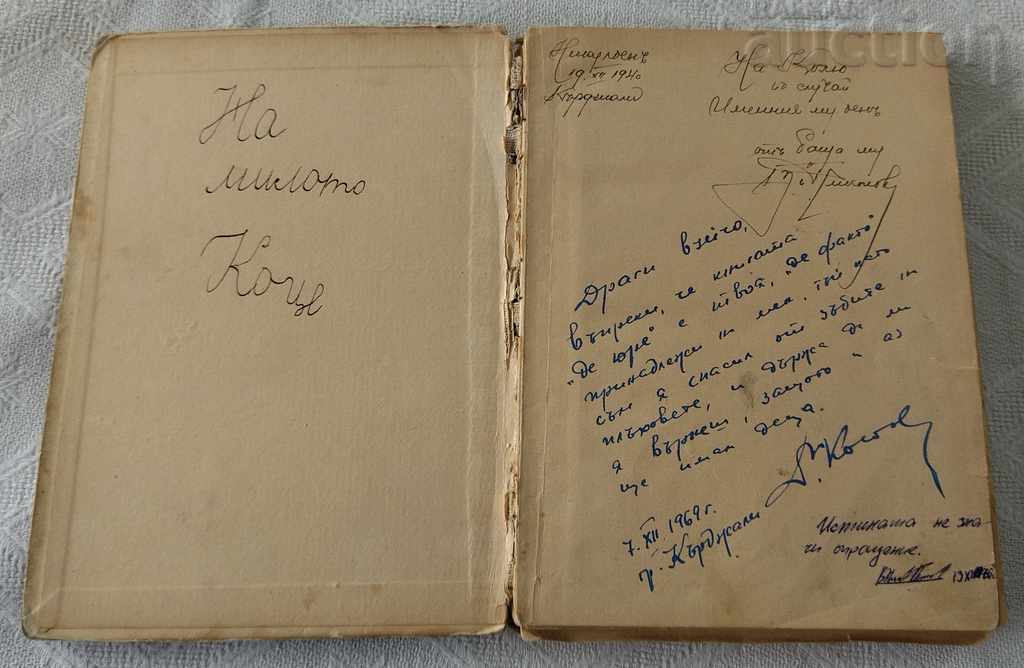 На
милото
Коце
Никулденъ
19.XII 1940
Кърджали
На Колю
по случай
Имения му денъ
отъ баща му
Драги вуйчо,
въпреки, че книгата
"де юре" е твоя, "де факто"
принадлежи на мен, тъй като
съм я спасил от зъбите на
плъховете, и държа да ми
я върнеш, защото и аз
ще имам деца.
7.XII 1969 г.
гр. Кърджали
Истината не зна-
чи отрацание.
auction